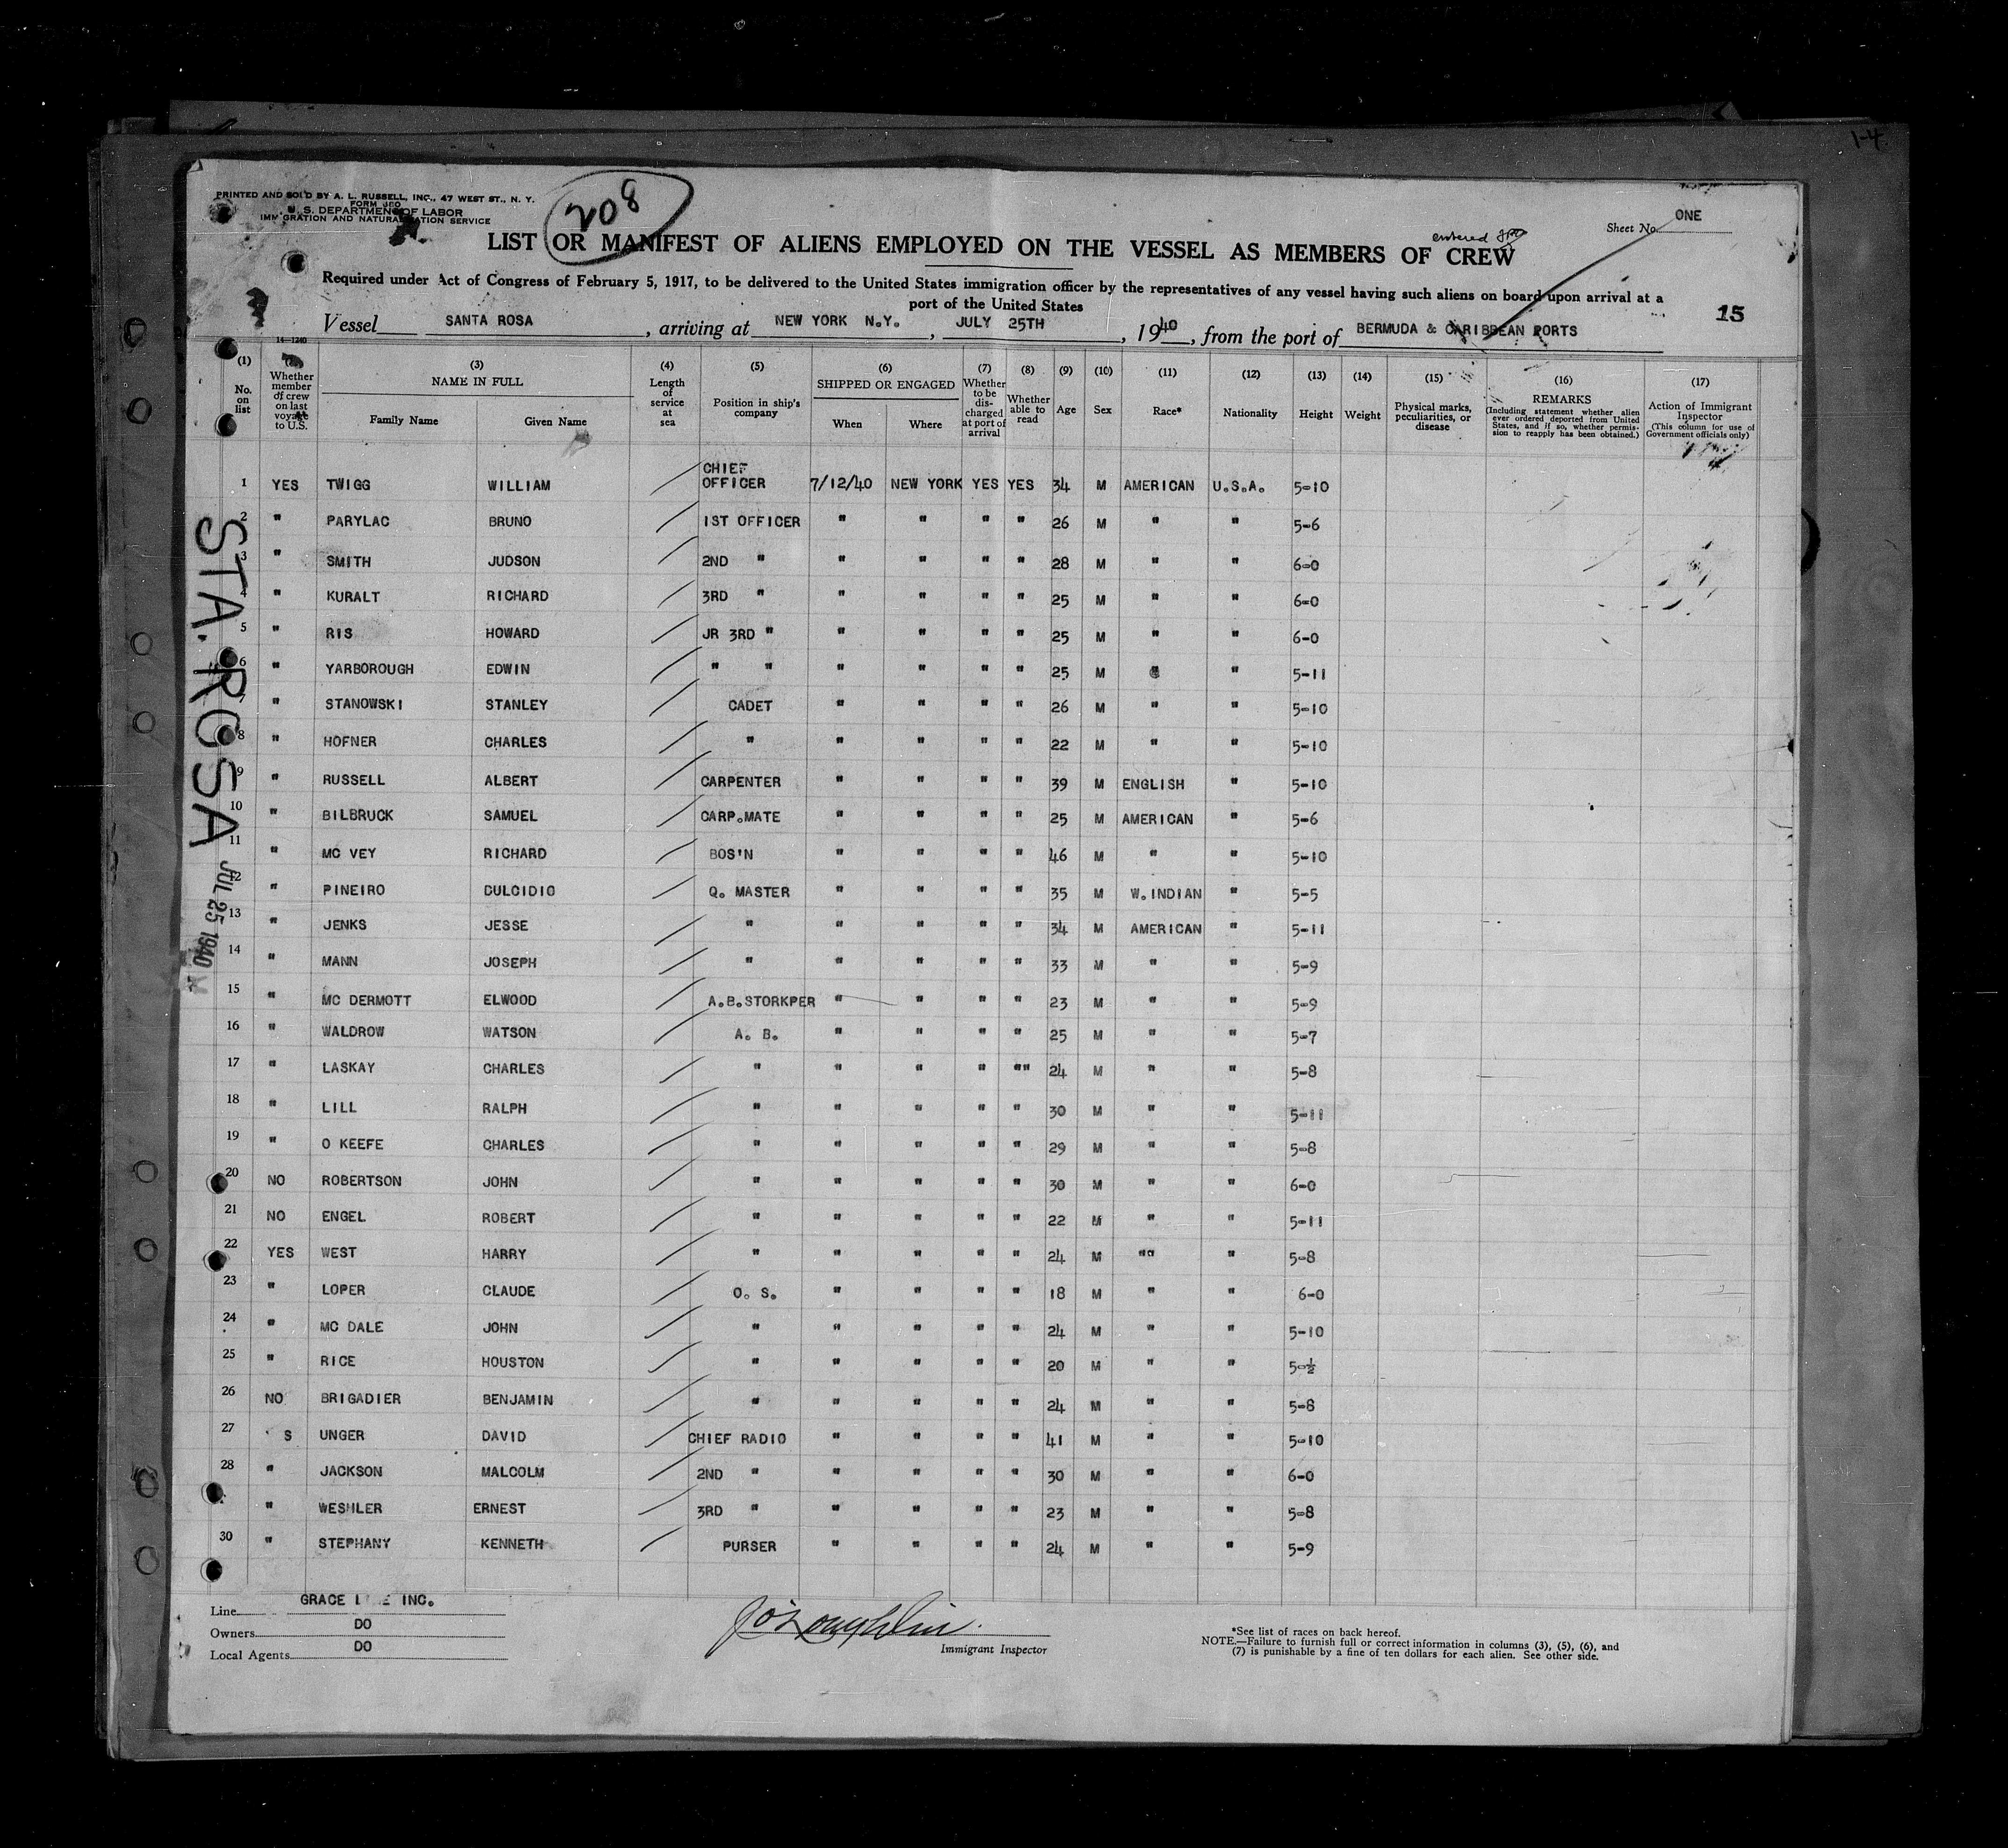 1-4
PRINTED AND SOLD BY A. L. RUSSELL, INC., 47 WEST ST., N. Y.
FORM
U. S. DEPARTMENT OF LABOR
IMMIGRATION AND NATURALIZATION SERVICE
208
Sheet No. ONE
entered
LIST OR MANIFEST OF ALIENS EMPLOYED ON THE VESSEL AS MEMBERS OF CREW
Required under Act of Congress of February 5, 1917, to be delivered to the United States immigration officer by the representatives of any vessel having such aliens on board upon arrival at a
port of the United States
15
Vessel SANTA ROSA, arriving at NEW YORK N.Y., JULY 25TH, 1940, from the port of BERMUDA & CARIBBEAN PORTS
14-1240
(1) No. on list
Whether member of crew on last voyage to U.S.
(3) NAME IN FULL Family Name Given Name
(4) Length of service at sea
(5) Position in ship's company
(6) SHIPPED OR ENGAGED When Where
(7) Whether to be discharged at port of arrival
(8) Whether able to read
(9) Age
(10) Sex
(11) Race*
(12) Nationality
(13) Height
(14) Weight
(15) Physical marks, peculiarities, or disease
(16) REMARKS (Including statement whether alien ever ordered deported from United States, and if so, whether permission to reapply has been obtained.)
(17) Action of Immigrant Inspector (This column for use of Government officials only)
1 YES TWIGG WILLIAM CHIEF OFFICER 7/12/40 NEW YORK YES YES 34 M AMERICAN U.S.A. 5-10
2 " PARYLAC BRUNO 1ST OFFICER " " " " 26 M " " 5-6
3 " SMITH JUDSON 2ND " " " " " 28 M " " 6-0
4 " KURALT RICHARD 3RD " " " " " 25 M " " 6-0
5 " RIS HOWARD JR 3RD " " " " " 25 M " " 6-0
6 " YARBOROUGH EDWIN " " " " " " 25 M " " 5-11
" STANOWSKI STANLEY CADET " " " " 26 M " " 5-10
8 " HOFNER CHARLES " " " " " 22 M " " 5-10
9 " RUSSELL ALBERT CARPENTER " " " " 39 M ENGLISH " 5-10
10 " BILBRUCK SAMUEL CARP.MATE " " " " 25 M AMERICAN " 5-6
11 " MC VEY RICHARD BOS'N " " " " 46 M " " 5-10
12 " PINEIRO DULCIDIO Q. MASTER " " " " 35 M W. INDIAN " 5-5
13 " JENKS JESSE " " " " " 34 M AMERICAN " 5-11
14 " MANN JOSEPH " " " " " 33 M " " 5-9
15 " MC DERMOTT ELWOOD A.B.STORKPER " " " " 23 M " " 5-9
16 " WALDROW WATSON A. B. " " " " 25 M " " 5-7
17 " LASKAY CHARLES " " " " "" 24 M " " 5-8
18 " LILL RALPH " " " " " 30 M " " 5-11
19 " O KEEFE CHARLES " " " " " 29 M " " 5-8
20 NO ROBERTSON JOHN " " " " " 30 M " " 6-0
21 NO ENGEL ROBERT " " " " " 22 M " " 5-11
22 YES WEST HARRY " " " " " 24 M "" " 5-8
23 " LOPER CLAUDE O. S. " " " " 18 M " " 6-0
24 " MC DALE JOHN " " " " " 24 M " " 5-10
25 " RICE HOUSTON " " " " " 20 M " " 5-½
26 NO BRIGADIER BENJAMIN " " " " " 24 M " " 5-8
27 S UNGER DAVID CHIEF RADIO " " " " 41 M " " 5-10
28 " JACKSON MALCOLM 2ND " " " " " 30 M " " 6-0
" WESHLER ERNEST 3RD " " " " " 23 M " " 5-8
30 " STEPHANY KENNETH PURSER " " " " 24 M " " 5-9
STA. ROSA
JUL 25 1940
Line GRACE LINE INC.
Owners DO
Local Agents DO
J O'Loughlin
Immigrant Inspector
*See list of races on back hereof.
NOTE.—Failure to furnish full or correct information in columns (3), (5), (6), and
(7) is punishable by a fine of ten dollars for each alien. See other side.